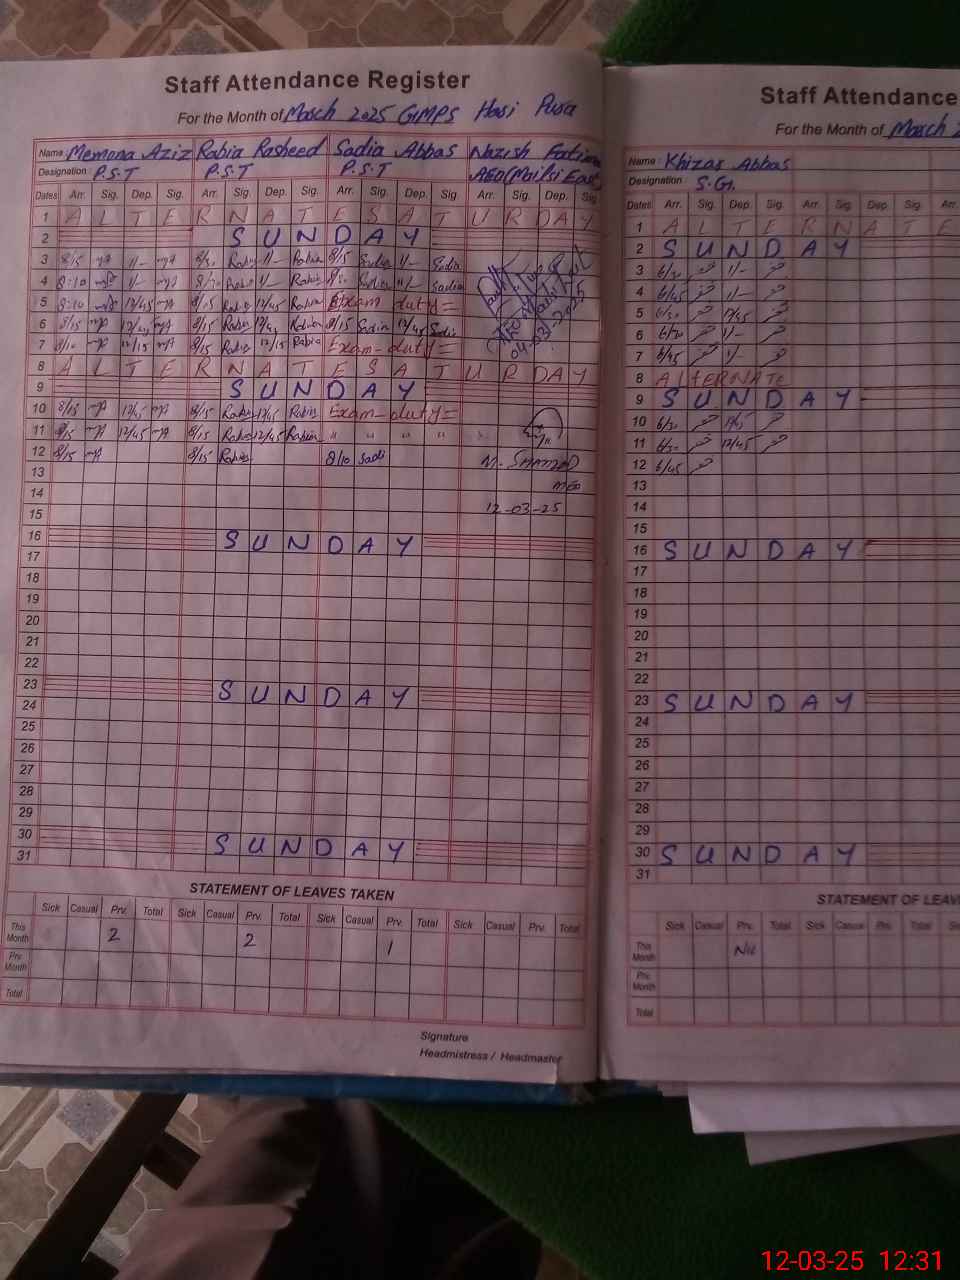 Staff Attendance Register
For the Month of March 2025 GMPS Hasi Pura
Name : Memona Aziz Rabia Rasheed Sadia Abbas Nazish Fatima
Designation : P.S.T P.S.T P.S.T AEO (Mailsi East)
Dates Arr. Sig. Dep. Sig. Arr. Sig. Dep. Sig. Arr. Sig. Dep. Sig. Arr. Sig. Dep. Sig.
1 A L T E R N A T E S A T U R D A Y
2 S U N D A Y
3 8/15 1/- Rabia 1/- Rabia 8/15 Sadia 1/- Sadia
4 8:10 1/- Rabia 1/- Rabia Sadia 1/- Sadia
5 8:10 12/45 8/15 Rabia 12/45 Rabia Exam duty =
6 8/15 12/45 8/15 Rabia 12/45 Rabia 8/15 Sadia 12/45 Sadia
7 8/10 12/15 8/15 Rabia 12/15 Rabia Exam-duty =
04-03-2025
8 A L T E R N A T E S A T U R D A Y
9 S U N D A Y
10 8/15 12/45 8/15 Rabia 12/45 Rabia Exam-duty =
11 8/15 12/45 8/15 Rabia 12/45 Rabia " " " "
12 8/15 8/15 Rabia 8/10 Sadi
13
14
15
12-03-25
16 S U N D A Y
17
18
19
20
21
22
23 S U N D A Y
24
25
26
27
28
29
30 S U N D A Y
31
STATEMENT OF LEAVES TAKEN
Sick Casual Prv. Total Sick Casual Prv. Total Sick Casual Prv. Total Sick Casual Prv. Total
This Month 2 2 1
Prv. Month
Total
Signature
Headmistress / Headmaster
Staff Attendance
For the Month of March 2
Name : Khizar Abbas
Designation : S.G.
Dates Arr. Sig. Dep. Sig. Arr. Sig. Dep. Sig. Arr.
1 A L T E R N A T E
2 S U N D A Y
3 6/30 1/-
4 6/45 1/-
5 6/30 12/45
6 6/30 1/-
7 6/45 1/-
8 ALTERNATE
9 S U N D A Y
10 6/30 12/45
11 6/30 12/45
12 6/45
13
14
15
16 S U N D A Y
17
18
19
20
21
22
23 S U N D A Y
24
25
26
27
28
29
30 S U N D A Y
31
STATEMENT OF LEAV
Sick Casual Prv. Total Sick Casual Prv. Total
This Month Nil
Prv. Month
Total
12-03-25 12:31